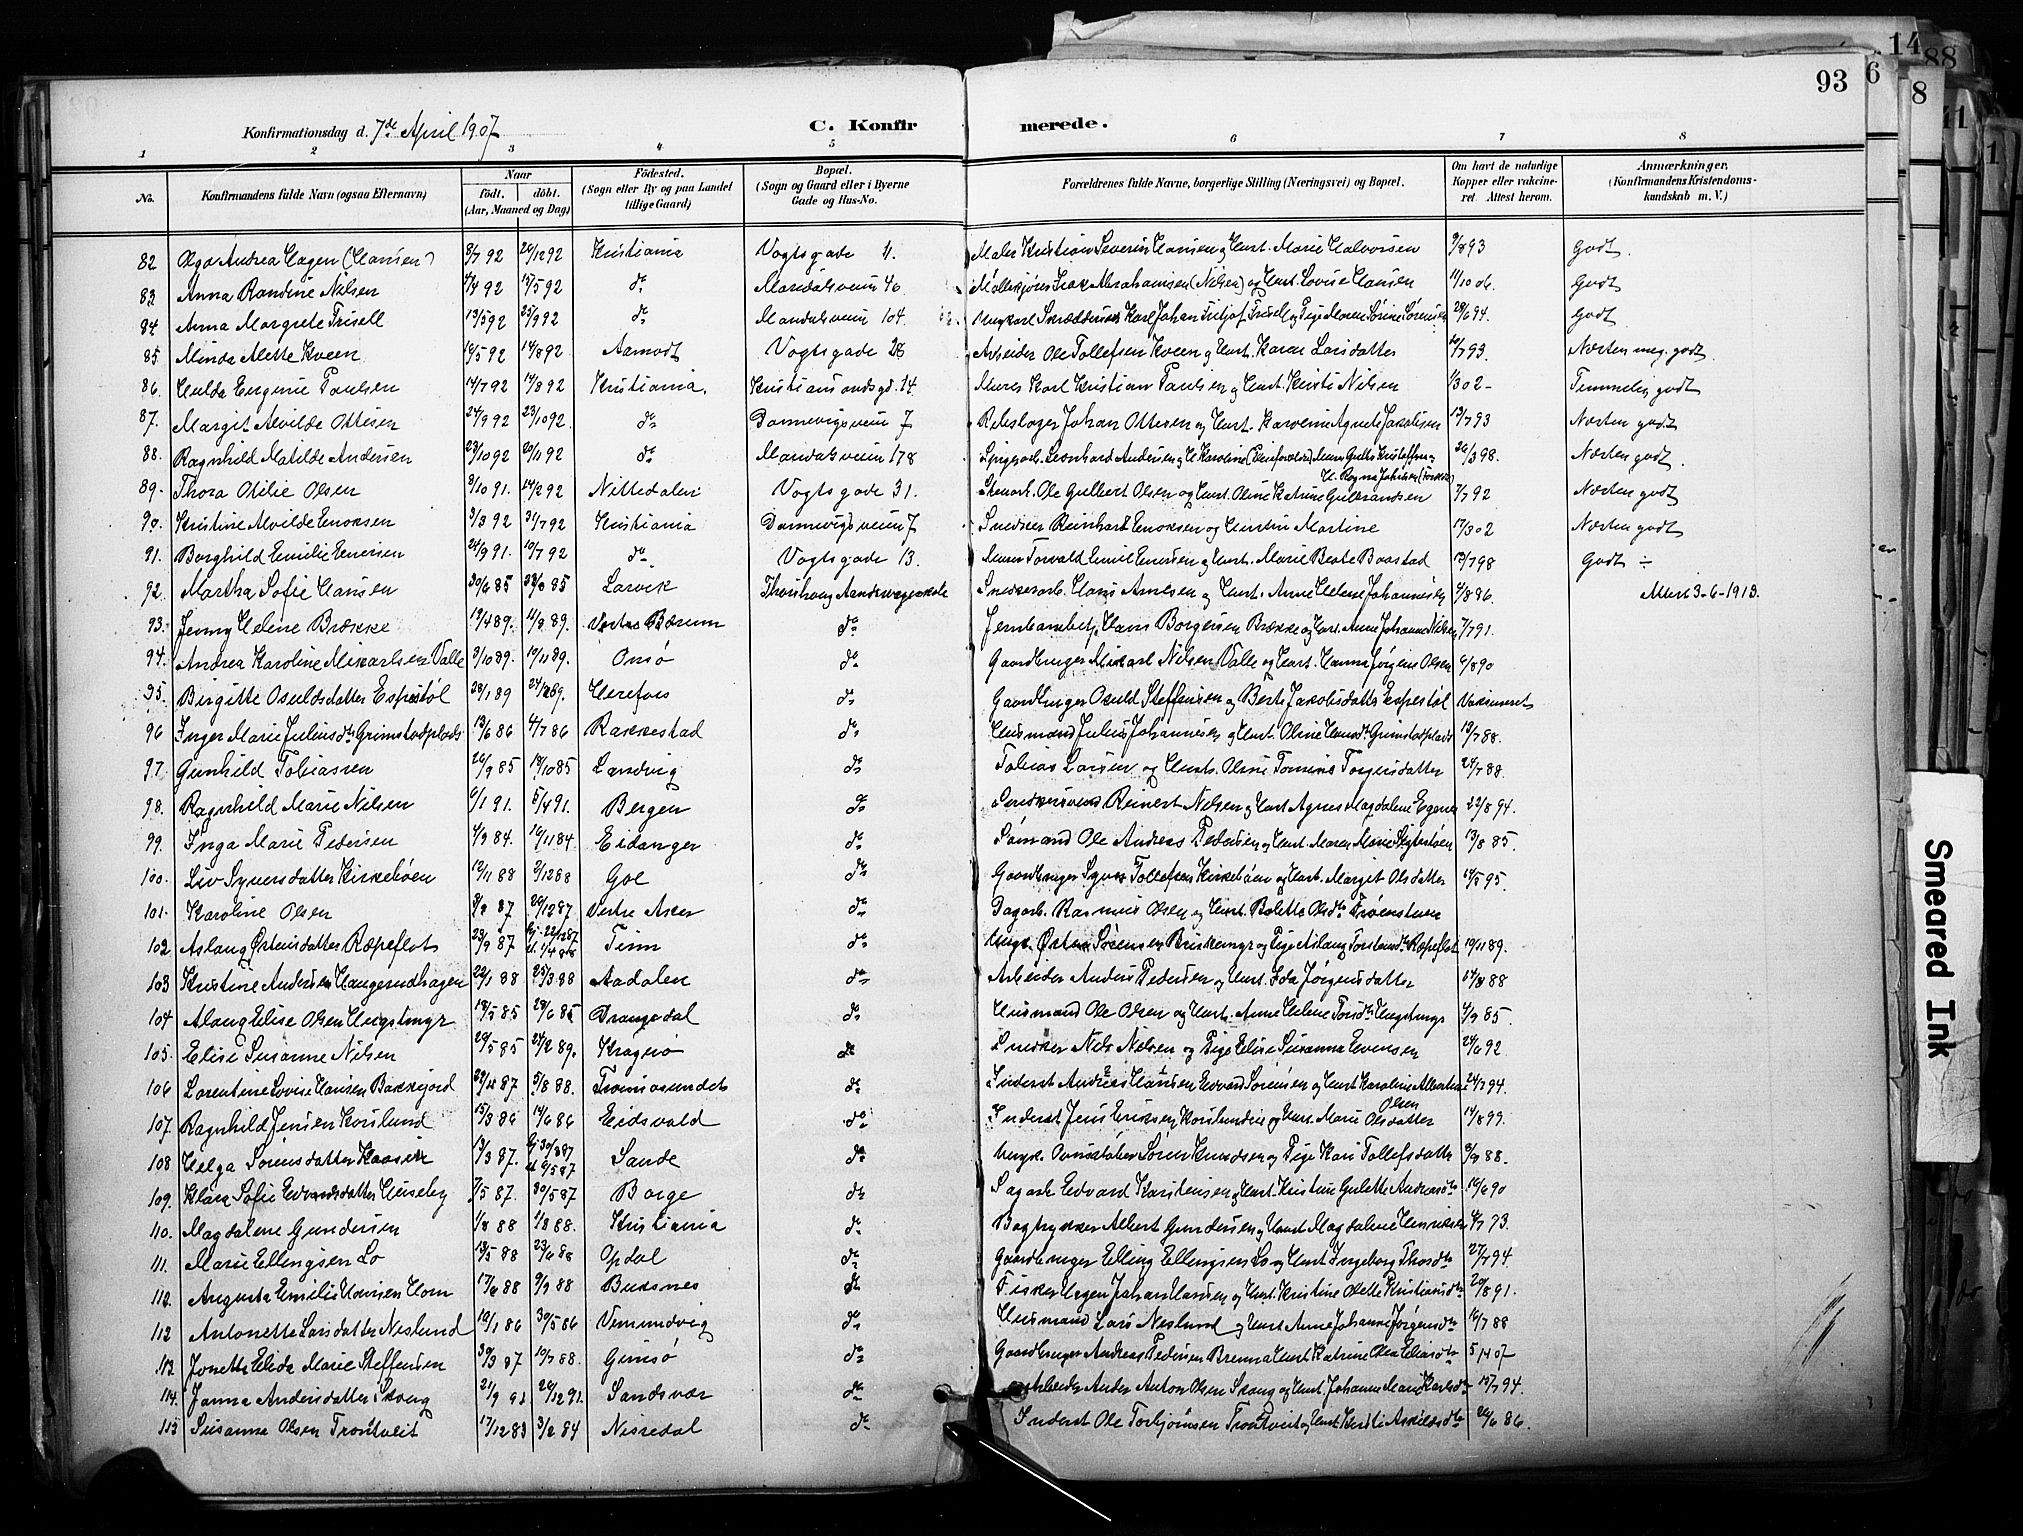 14
88
93
6
8
1
Konfirmationsdag d. 7de April 1907
C. Konfir
merede.
1 2 3 4 5 6 7 8
No. Konfirmandens fulde Navn (ogsaa Efternavn) Naar Födt. döbt. (Aar, Maaned og Dag) Födested. (Sogn eller By og paa Landet tillige Gaard) Bopæl. (Sogn og Gaard eller i Byerne Gade og Hus-No. Forældrenes fulde Navne, borgerlige Stilling (Næringsvei) og Bopæl. Om havt de naturlige Kopper eller vakcineret. Attest herom. Anmærkninger. (Konfirmandens Kristendomskundskab m. V.)
82 Olga Andrea Hagen (Hansen) 8/7 92 Kristiania Vogtsgade Maler Kristian Severin Hansen og Hust. Marie Halvorsen 9/8 93 Godt.
83 Anna Randine Nilsen 92 15/5 92 do Maridalsveien 46 Abrahamsen (Nilsen) og Hust. Lovise Hansen 11/10 06. Godt
84. Anna Margrete Frisell 13/5 92 25/9 92 do Maridalsveien 104 Karl Johan Fritjof Frisell og Pige Maren Sørine Sørensen 28/6 94. Godt
85 Minda Alette Kveen 16/5 92 14/8 92 Aamodt Vogtsgade 28 Arbeider Ole Tollefsen Kveen og Hust. Karen Larsdatter Næsten meg. godt
86. Hulda Eugenie Paulsen 14/7 92 14/8 92 Kristiania. Kristiansandsgd. 14 Murer Karl Kristian Paulsen og Hust. Kristi Nilsen 1/3 02 Temmelig godt
87. Margit Alvilde Ottesen 24/9 92 23/10 92 do Dannevigsveien 7 Rebslager Johan Ottesen og Hust. Karoline Agnete Jakobsen 13/7 93 Næsten godt
88. Ragnhild Matilde Andersen 23/10 92 20/11 92 do Maridalsveien 178 Leonhard Andersen og H. Karoline 26/3 98. Næsten godt.
89. Thora Otilie Olsen 8/10 91. 14/2 92 Nittedalen Vogtsgade 31. Stenarb. Ole Gulbert Olsen og Hust. Oline Katrine Gulbrandsen 7/7 92 Næsten godt
90. Kristine Alvilde Enoksen 3/3 92 31/7 92 Kristiania Dannevigsveien 7 Snedker Reinhardt Enoksen og Hustru Martine 17/3 02 Næsten godt
91. Borghild Emilie Enersen 24/9 91. 10/7 92 do Vogtsgade 13. Murer Torvald Emil Enersen og Hust. Marie Berte Baastad 13/7 98 Godt ÷
92. Martha Sofie Hansen 30/6 85 23/8 85 Larvik Snedkerarb. Hans Arnesen og Hust. Anne Helene Johannesen 4/8 86. Attest 3-6-1913.
93. Jenny Helene Brække 19/4 89. 11/8 89. Vestre Bærum do Jernbanebetj. Hans Borgersen Brække og Hust. Anne Johanne Nilsen 7/7 91.
94. Andrea Karoline Mikaelsen Valle 3/10 89. 10/11 89. Onsö do Gaardbruger Mikael Nilsen Valle og Hust. Hanna Jørgine Olsen 6/8 90
95. Birgitte Osuldsdatter Espestøl 28/1 89 24/2 89. Herefos do Gaardbruger Osuld Steffensen og Berte Jakobsdatter Espestøl Vaksineret
96 Inger Marie Juliusdtr Grimstadplads 13/6 86 4/7 86 Rakkestad do Husmand Julius Johannesen og Hust. Oline Hansdtr Grimstadplads 13/7 88.
97. Gunhild Tobiassen 26/9 85 18/10 85 Landvig do Tobias Larsen og Hust. Olene Tomine Torgersdatter 24/7 88.
98. Ragnhild Marie Nilsen 6/1 91. 5/4 91. Bergen do Reinert Nilsen og Hust Agnes Magdalene Egenes 22/8 94.
99. Inga Marie Pedersen 4/9 84. 16/11 84 Eidanger do Sømand Ole Andreas Pedersen og Hust. Maren Marie 13/8 85.
100. Liv Syversdatter Kirkebøen 12/11 88 2/12 88 Gol do Gaardbruger Syver Tollefsen Kirkebøen og Hust. Margit Olsdatter 14/5 95.
101. Karoline Olsen 87 26/12 87 Vestre Aker do Dagarb. Rasmus Olsen og Hust. Bolette Olsdtr
102 Aslaug Østensdatter Ræpeflot 23/9 87 Tinn do Østen Sørensen og Pige Aslaug Torstensdtr Ræpeflot 19/11 89.
103 Kristine Andersen Haugerudhagen 22/1 88 25/3 88 Aadalen do Arbeider Anders Pedersen og Hust. Ida Jørgensdatter 88
104. Alaug Elise Olsen Hegstmyr 18/5 85 28/6 85 Drangedal do Husmand Ole Olsen og Hust. Anne Helene 4/9 85.
105. Elise Susanne Nilsen 29/5 85 24/2 89. Kragerø do Snedker Nils Nilsen og Pige Elise Susanna Evensen 24/6 92
106 Lorentine Lovise Hansen Bakkejord 87 5/8 88. Tromsøsundet do Inderst Andreas Hansen Edvard Sørensen og Hust Karoline 24/7 94.
107. Ragnhild Jensen Korslund 15/3 86 14/6 86 Eidsvold do Inderst Jens Eriksen Korslund og Hust. Marie Olsdatter Olsen 14/8 99.
108. Helga Sørensdatter Kaasen 13/3 87. Sande do Søren Knudsen og Pige Kari Tollefsdatter 88.
109. Klara Sofie Edvardsdatter Huseby 7/5 87. 30/5 87 Borge do Sagarb. Edvard Karstensen og Hust. Kristine Gulette Andreasdtr 16/6 90
110. Magdalene Gundersen 88 88. Kristiania do Bogtrykker Albert Gundersen og Hust Magdalene Henriksen 93.
111. Marie Ellingsen Lo 13/5 88 23/6 88 Opdal do Gaardbruger Elling Ellingsen Lo og Hust Ingeborg 27/7 94.
112. Augusta Emilie Hansen Horn 17/6 88 9/9 88 Buksnes do Fisker Hagen Johan Hansen og Hust. Kristine Olette Kristiansdtr 20/8 91.
112 Antonette Larsdatter Neslund 10/1 86 30/5 86 Vemundvig do Husmand Lars Neslund og Hust Anne Johanne Jørgensdtr 16/7 88
113 Jonette Elida Marie Steffensen 30/3 87 10/7 88. Gimsø do Gaardbruger Andreas Pedersen Brenna Hust Katrine Olea Eliasdtr
114. Janna Andersdatter Skoug 21/9 91 26/12 91. Sandsvær do Arbeider Ander Anton Olsen Skaug og Hust. Johanne Marie Karlsdtr 15/7 94.
115 Susanne Olsen Trontveit 17/12 83 3/2 84 Nissedal do Inderst Ole Torbjörnsen Trontveit og Hust. Kirsti Askildsdtr 26/6 86.
Smeared Ink